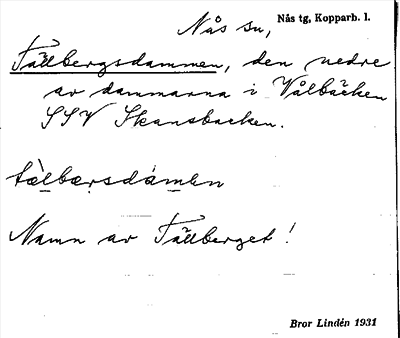 Nås sn, Nås tg, Kopparb. l.
Tällbergsdammen, den nedre
av dammarna i Vålbäcken
SSV Skansbacken.
tälbærsdámen
Namn av Tällberget!
Bror Lindén 1931